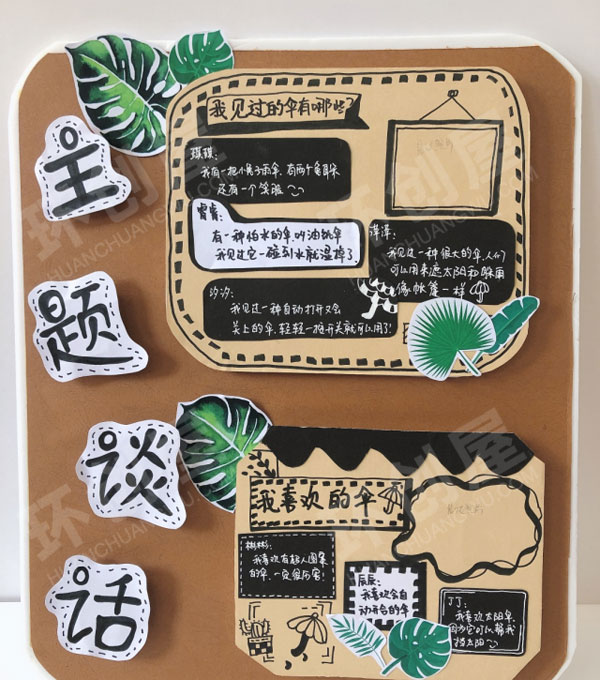 主
题
谈
话
我见过的伞有哪些?
琪琪:
我有一把小黄子雨伞,有两个兔耳朵
还有一个笑脸
有一种怕水的伞叫油纸伞
我见过它一碰到水就湿掉了.
我见过一种很大的伞,人们
可以用来遮太阳和躲雨
像帐篷一样
汐汐:
我见过一种自动打开又会
关上的伞,轻轻一按开关就可以用了!
我喜欢的伞
彬彬:
我喜欢有超人图案
的伞,一定很厉害!
辰辰:
我喜欢会自
动开合的伞
丁丁:
我喜欢太阳伞,
因为它可以帮我
挡太阳~
环创屋
HUANCHUANGWU.COM